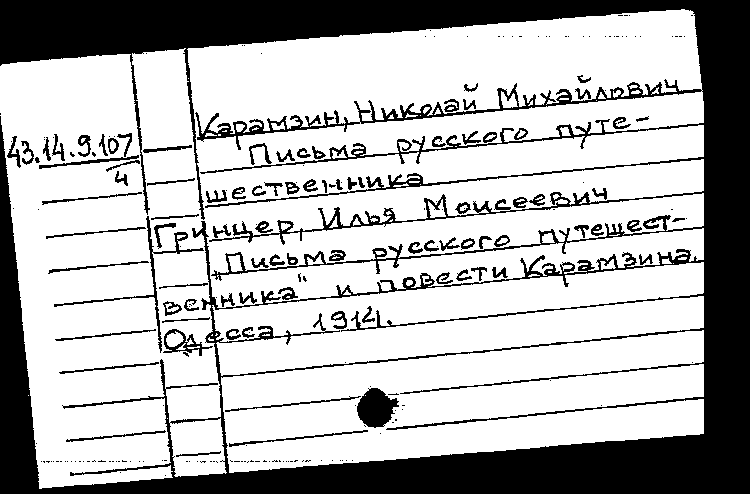 Карамзин, Николай Михайлович
43.14.9.107
4
Письма русского путе-
шественника
Гринцер, Илья Моисеевич
„Письма русского путешест-
венника" и повести Карамзина.
Одесса, 1914.